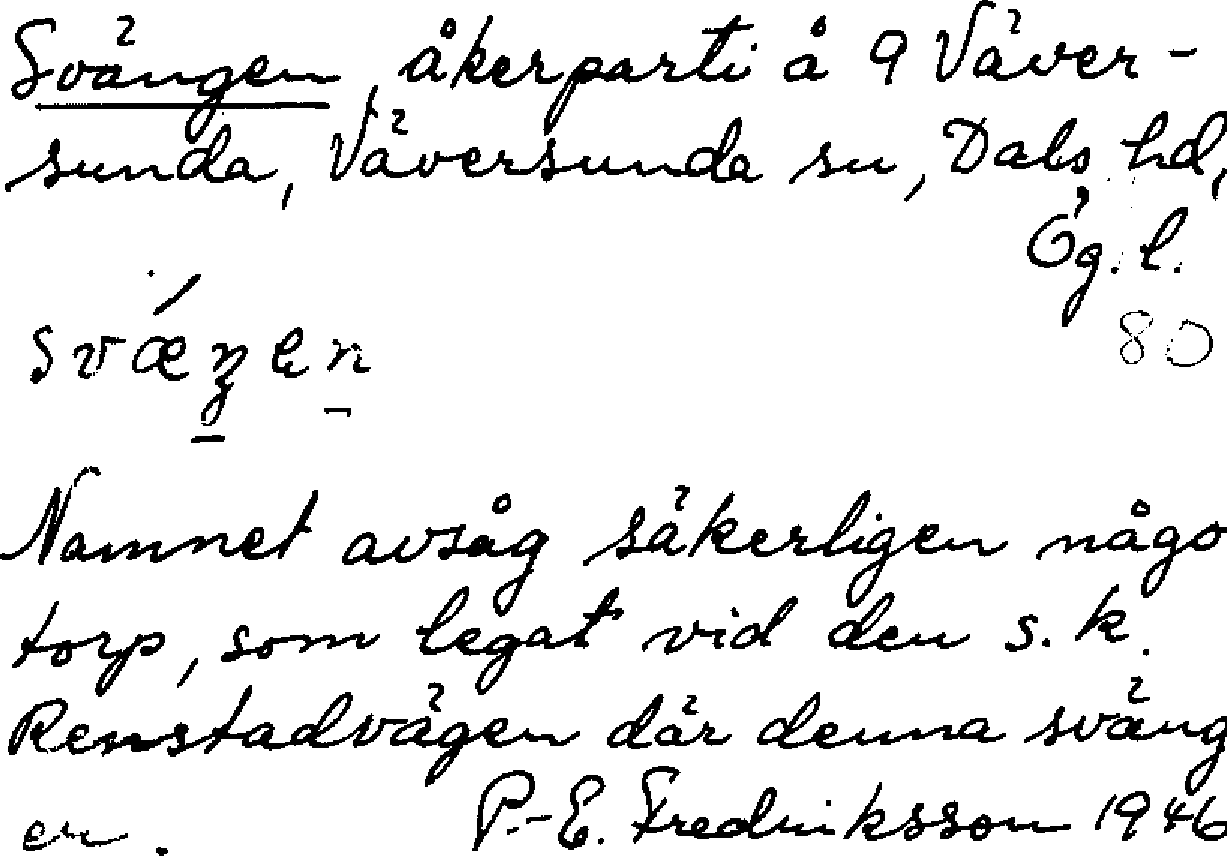 Svängen, åkerparti å 9 Väver-
sunda, Väversunda sn, Dals hd,
Ög. l.
80
Namnet avsåg säkerligen någo
torp, som legat vid den s.k.
Renstadvägen där denna sväng
er.
P.-E. Fredriksson 1946